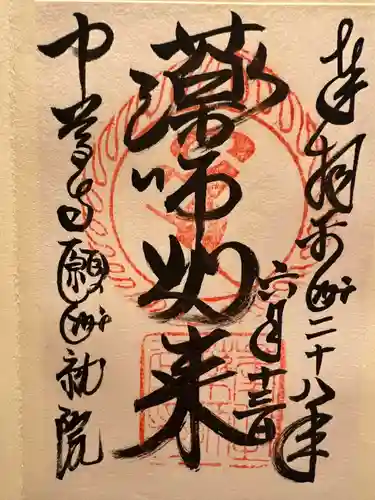 奉拝平成二十八年
六月十三日
薬師如来
中尊寺願成就院